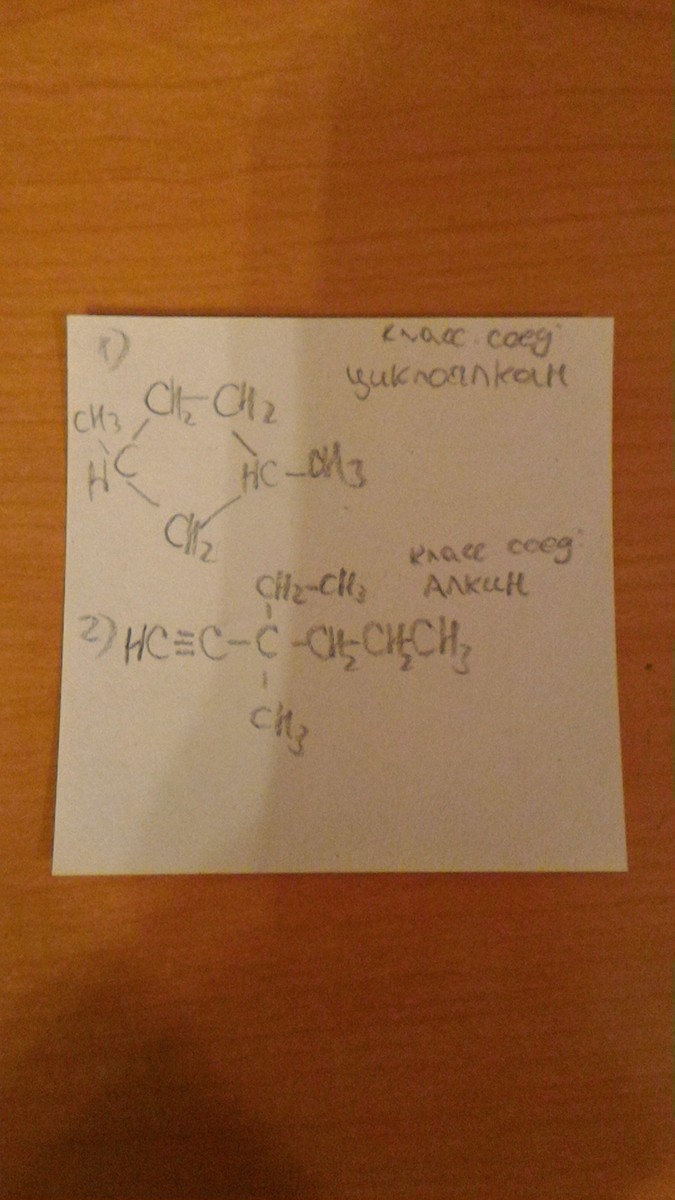 1)
класс. соед:
циклоалкан
CH₂-CH₂
CH₃
HC
HC-CH₃
CH₂
класс соед:
Алкин
CH₂-CH₃
2) HC≡C-C-CH₂-CH₂-CH₃
CH₃